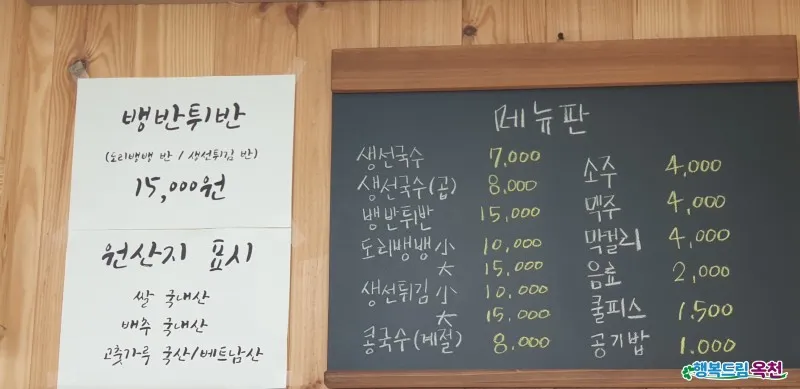 뱅반튀반
(도리뱅뱅 반 / 생선튀김 반)
15,000원
원산지 표시
쌀 국내산
배추 국내산
고춧가루 국산/베트남산
메뉴판
생선국수 7,000
생선국수(곱) 8,000
뱅반튀반 15,000
도리뱅뱅 小 10,000
大 15,000
생선튀김 小 10,000
大 15,000
콩국수(계절) 8,000
소주 4,000
맥주 4,000
막걸리 4,000
음료 2,000
쿨피스 1,500
공기밥 1,000
행복드림 옥천